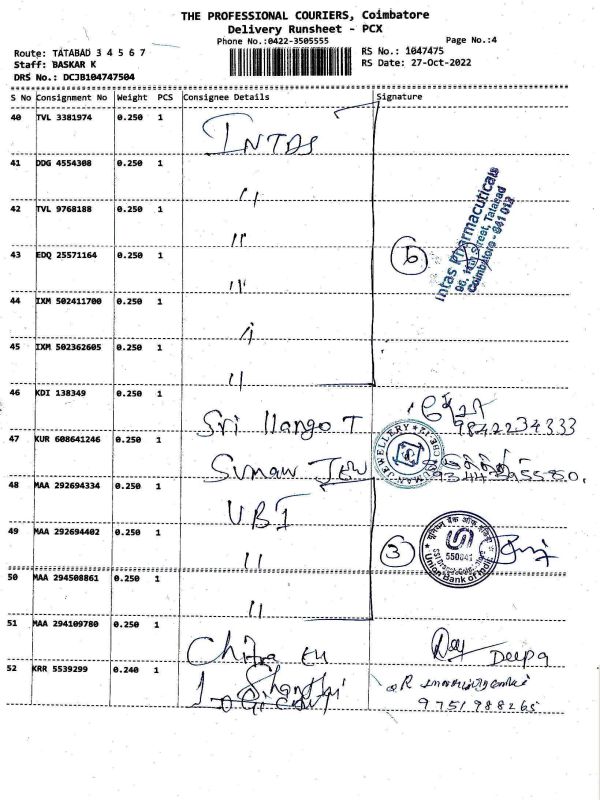 THE PROFESSIONAL COURIERS, Coimbatore
Delivery Runsheet - PCX
Phone No.:0422-3505555 Page No.:4
Route: TATABAD 3 4 5 6 7 RS No.: 1047475
Staff: BASKAR K RS Date: 27-Oct-2022
DRS No.: DCJB104747504
S No Consignment No Weight PCS Consignee Details Signature
40 TVL 3381974 0.250 1
INTAS
41 DDG 4554308 0.250 1
"
42 TVL 9768188 0.250 1
"
Intas Pharmaceuticals
Street, Tatabad
Coimbatore - 641 012
43 EDQ 25571164 0.250 1
"
44 IXM 502411700 0.250 1
"
45 IXM 502362605 0.250 1
"
46 KDI 138349 0.250 1
Sri Ilango T 9842234333
47 KUR 608641246 0.250 1
Suman Jew
JEWELLERY
48 MAA 292694334 0.250 1
UBI
49 MAA 292694402 0.250 1
" 3
यूनियन बैंक ऑफ इंडिया
550841
Union Bank of India
50 MAA 294508861 0.250 1
"
51 MAA 294109780 0.250 1
Chitra Deepa
52 KRR 5539299 0.240 1
Shanthi
9751988265